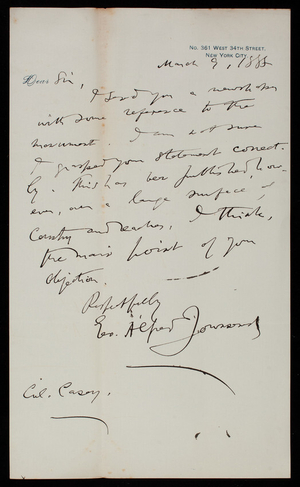 No. 361 West 34th Street,
New York City.
March 9, 1888
Dear Sir,
I send you a newspaper
with some reference to the
monument. I am not sure
I grasped your statement correct-
ly. This has been published, how-
ever, over a large surface of
Country and reaches, I think,
the main point of your
objection.
Respectfully
Geo. Alfred Townsend
Col. Casey.